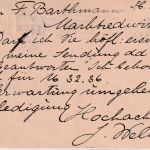 F. Barthmann
Marktredwitz
Darf ich Sie höfl. erin
meine Sendung dd
beantworten. Ich
für M 32.36.
Erwartung umgehe
ledigung
Hochach
J. Wel